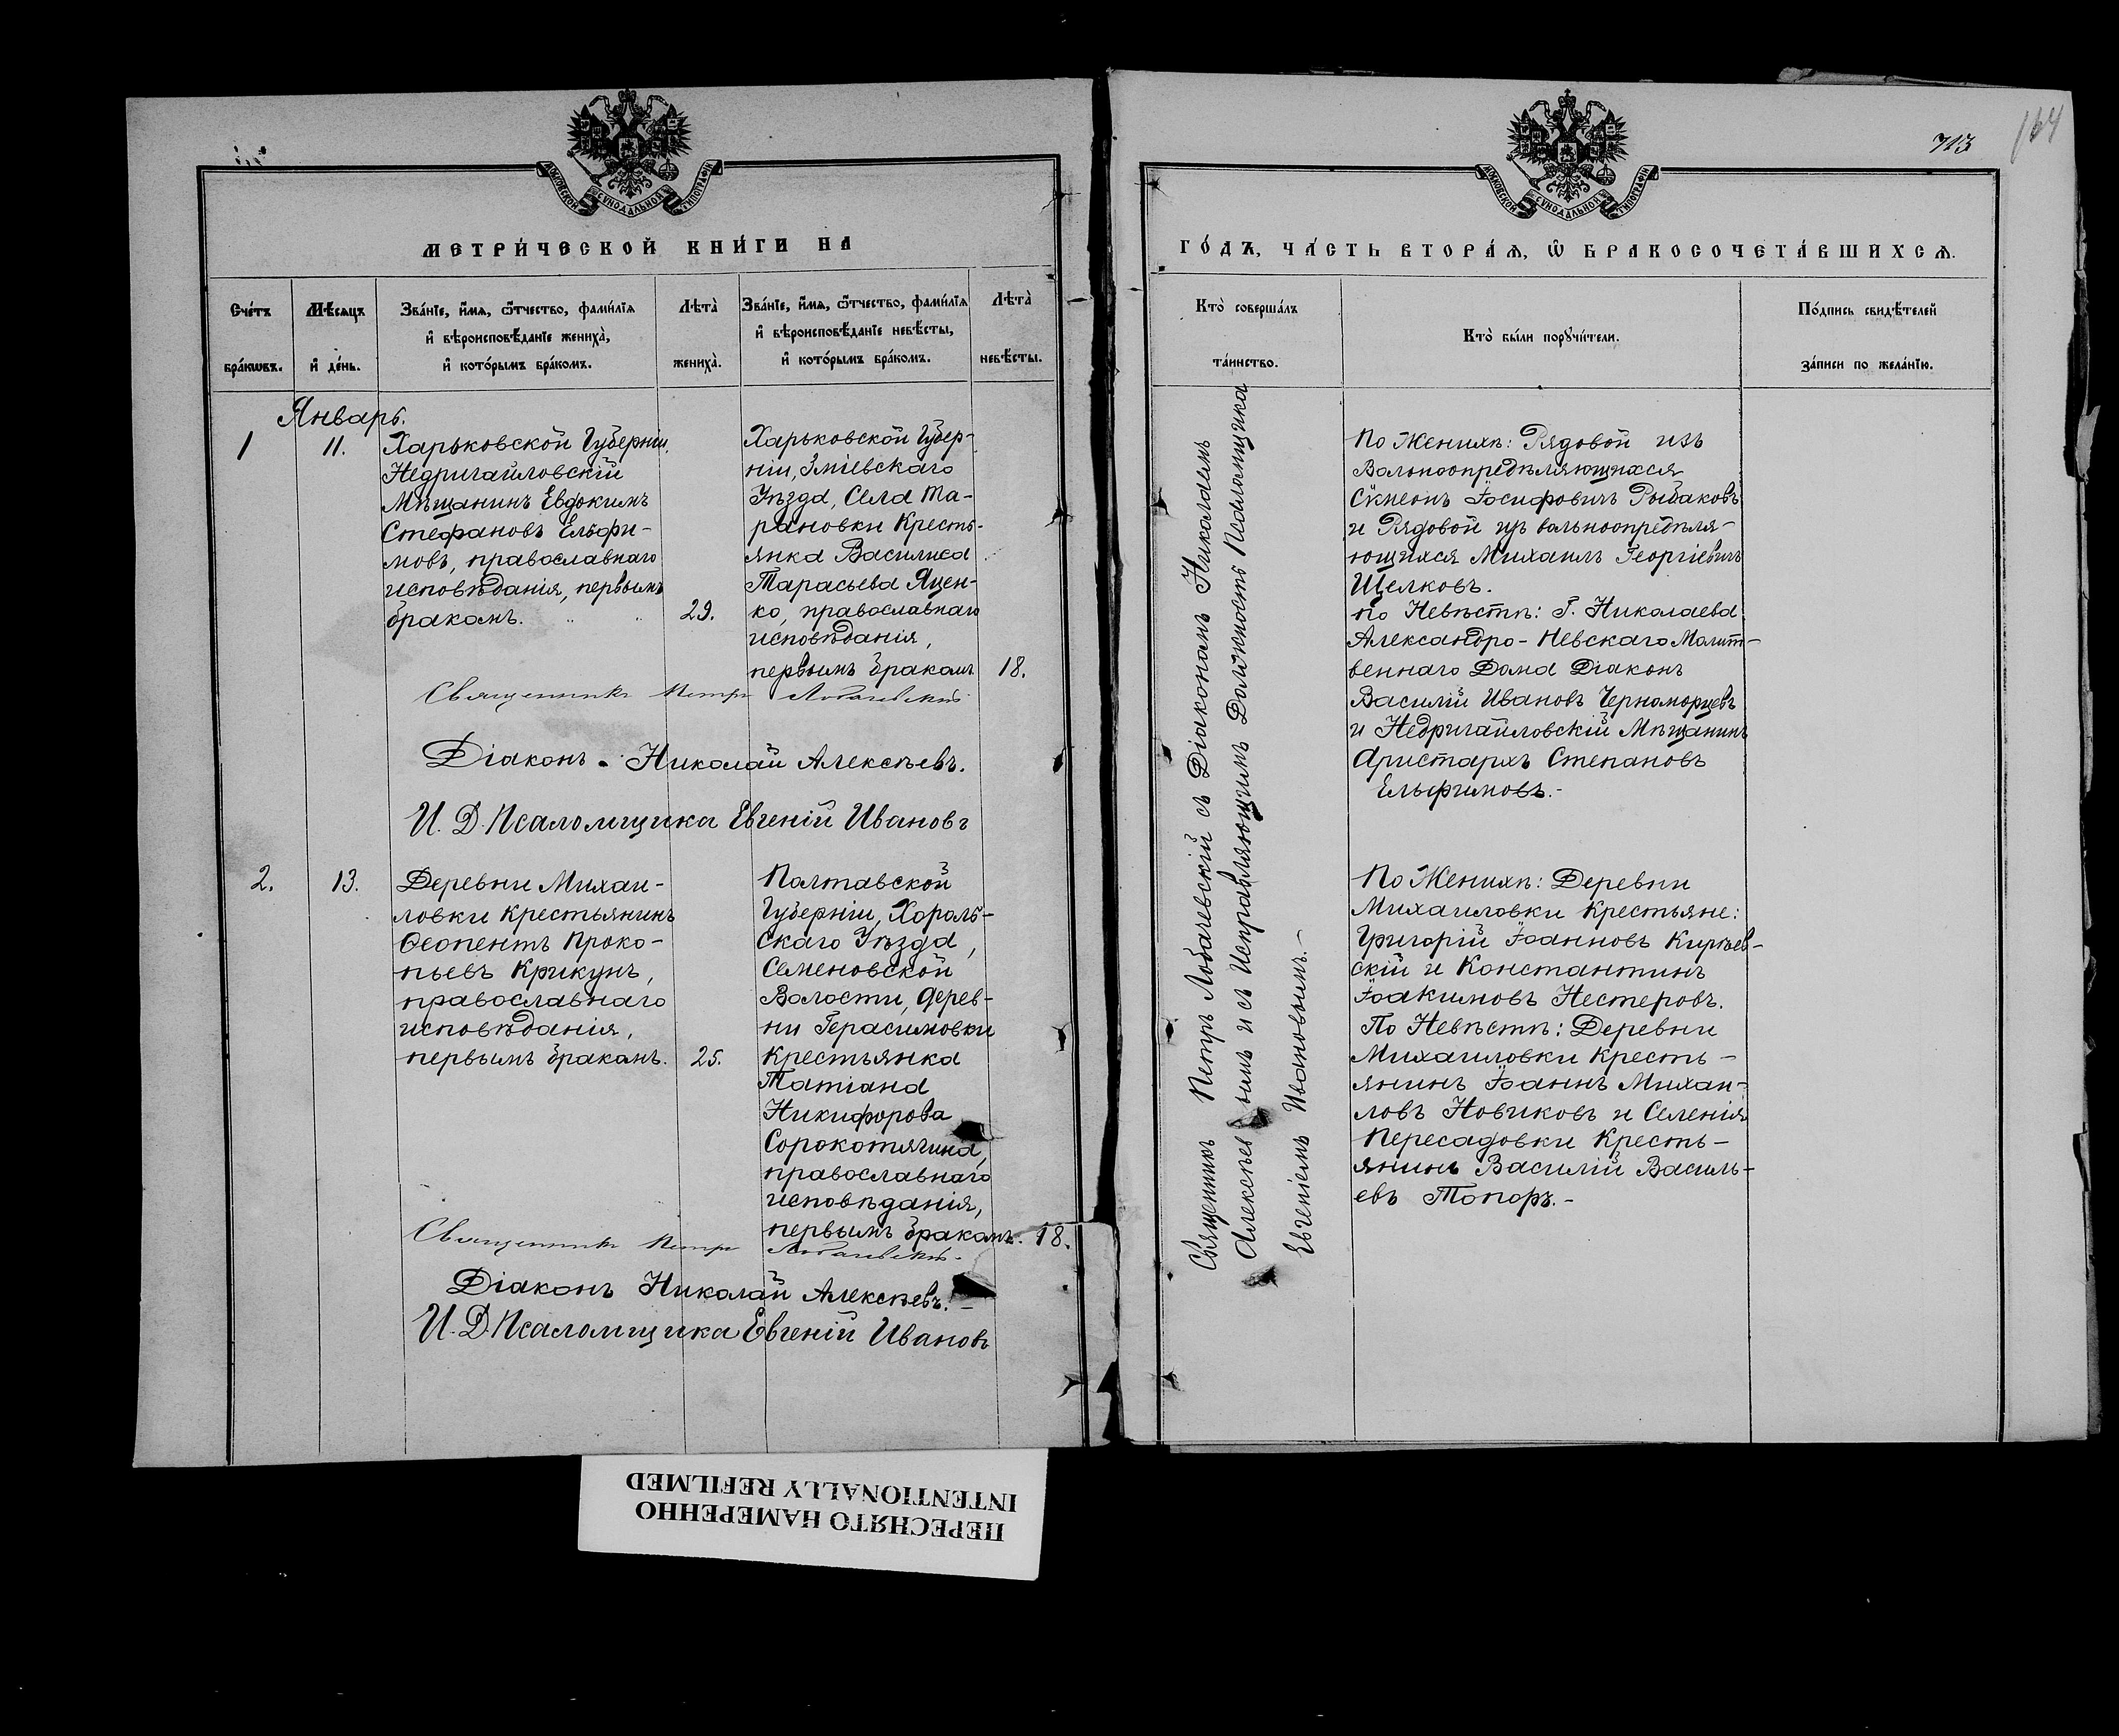 МОСКОВСКОЙ СѴНОДАЛЬНОЙ ТИПОГРАФІИ
МЕТРИ́ЧЕСКОЙ КНИ́ГИ НА
Сче́тъ бра́кѡвъ.
Мѣ́сяцъ и҆ де́нь.
Зва́нїе, и҆́мѧ, ѻ҆́тчество, фами́лїѧ
и҆ вѣроисповѣ́данїе жениха̀,
и҆ кото́рымъ бра́комъ.
Лѣта̀ жениха̀.
Зва́нїе, и҆́мѧ, ѻ҆́тчество, фами́лїѧ
и҆ вѣроисповѣ́данїе невѣ́сты,
и҆ кото́рымъ бра́комъ.
Лѣта̀ невѣ́сты.
Январь.
1
11.
Харьковской Губерніи,
Недригайловскій
Мѣщанинъ Евдокимъ
Стефановъ Ельфи-
мовъ, православнаго
исповѣданія, первымъ
бракомъ.
29.
Харьковской Губер-
ніи, Зміевскаго
Уѣзда, Села Та-
рановки Кресть-
янка Василиса
Тарасьева Яцен-
ко, православнаго
исповѣданія,
первымъ бракомъ
18.
Священникъ Петръ Лобачевскій
Діаконъ Николай Алексѣевъ.
И. Д. Псаломщика Евгеній Ивановъ
2.
13.
Деревни Михаи-
ловки Крестьянинъ
Ѳеопентъ Проко-
пьевъ Крикунъ,
православнаго
исповѣданія,
первымъ бракомъ.
25.
Полтавской
Губерніи, Хороль-
скаго Уѣзда,
Семеновской
Волости, дерев-
ни Герасимовки
Крестьянка
Татіана
Никифорова
Сорокотягина,
православнаго
исповѣданія,
первымъ бракомъ.
18.
Священникъ Петръ Лобачевскій
Діаконъ Николай Алексѣевъ.-
И. Д. Псаломщика Евгеній Ивановъ
713
164
МОСКОВСКОЙ СѴНОДАЛЬНОЙ ТИПОГРАФІИ
ГО́ДЪ, ЧА́СТЬ ВТОРА́Ѧ, Ѡ҆ БРАКОСОЧЕТА́ВШИХСѦ.
Кто̀ соверша́лъ
та́инство.
Кто̀ бы́ли порꙋчи́тели.
По́дпись свидѣ́телей
за́писи по жела́нїю.
Священникъ Петръ Лобачевскій съ Діакономъ Николаемъ
Алексѣевымъ и съ Исправляющимъ Должность Псаломщика
Евгеніемъ Ивановымъ.-
По Женихѣ: Рядовой изъ
Вольноопредѣляющихся
Сѵмеонъ Іосифовичъ Рыбаковъ
и Рядовой изъ вольноопредѣля-
ющихся Михаилъ Георгіевичъ
Щелковъ.
по Невѣстѣ: Г. Николаева
Александро-Невскаго Молит-
веннаго Дома Діаконъ
Василій Ивановъ Черноморцевъ
и Недригайловскій Мѣщанинъ
Аристархъ Степановъ
Ельфимовъ.-
По Женихѣ: Деревни
Михаиловки Крестьяне:
Григорій Іоанновъ Кирѣев-
скій и Константинъ
Іоакимовъ Нестеровъ.
По Невѣстѣ: Деревни
Михаиловки Кресть-
янинъ Іоаннъ Михаи-
ловъ Новиковъ и Селенія
Пересадовки Кресть-
янинъ Василій Василь-
евъ Топоръ.-
ПЕРЕСНЯТО НАМЕРЕННО
INTENTIONALLY REFILMED